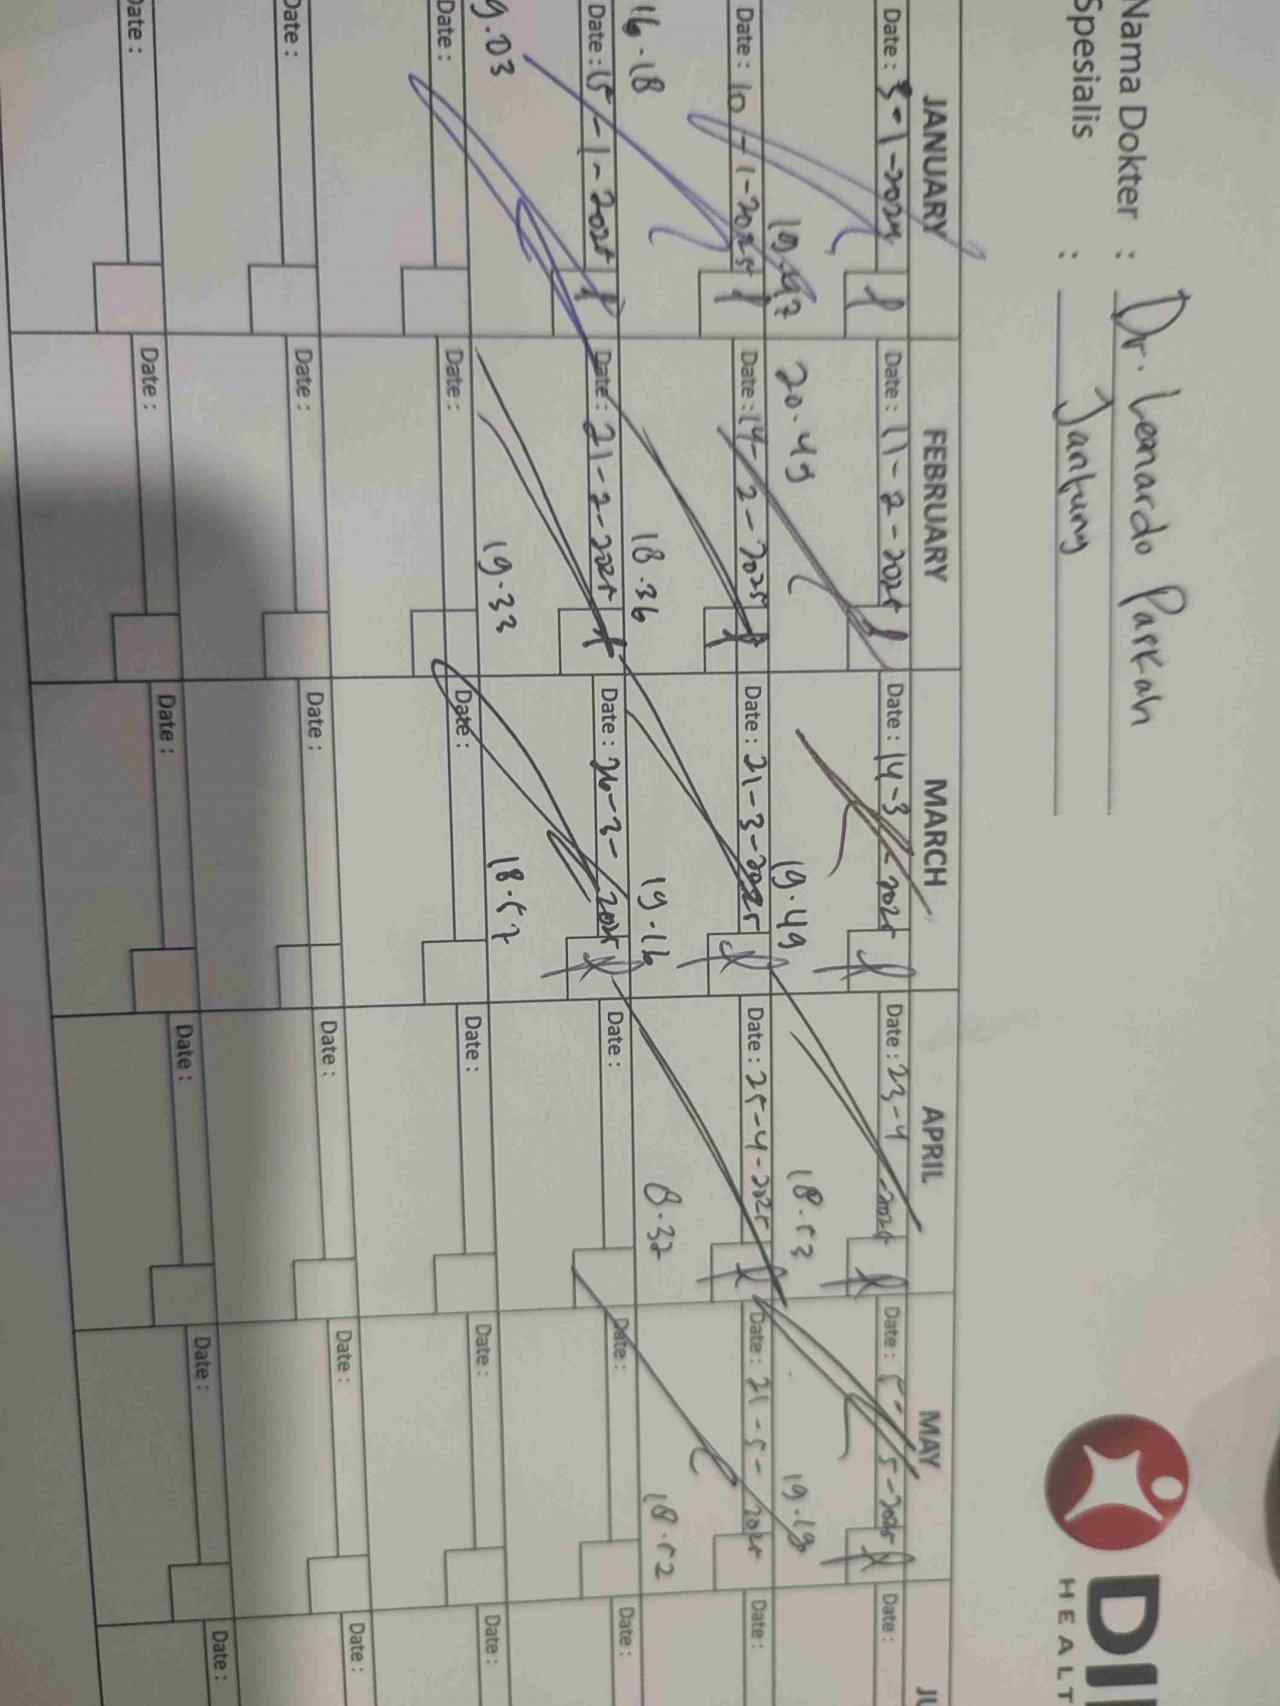 Nama Dokter : Dr. Leonardo Parkah
Spesialis : Jantung
DI
HEALT
JANUARY FEBRUARY MARCH APRIL MAY JU
Date : 3-1-2025 Date : 11-2-2025 Date : 14-3-2025 Date : 23-4-2025 Date : 5-5-2025 Date :
19.47 20.49 19.49 18.53 19.19
Date : 10-1-2025 Date : 14-2-2025 Date : 21-3-2025 Date : 25-4-2025 Date : 21-5-2025 Date :
16.18 18.36 19.16 8.32 18.52
Date : 15-1-2025 Date : 21-2-2025 Date : 26-3-2025 Date : Date : Date :
9.03 19.33 18.57
Date : Date : Date : Date : Date : Date :
Date : Date : Date : Date : Date : Date :
Date : Date : Date : Date : Date : Date :